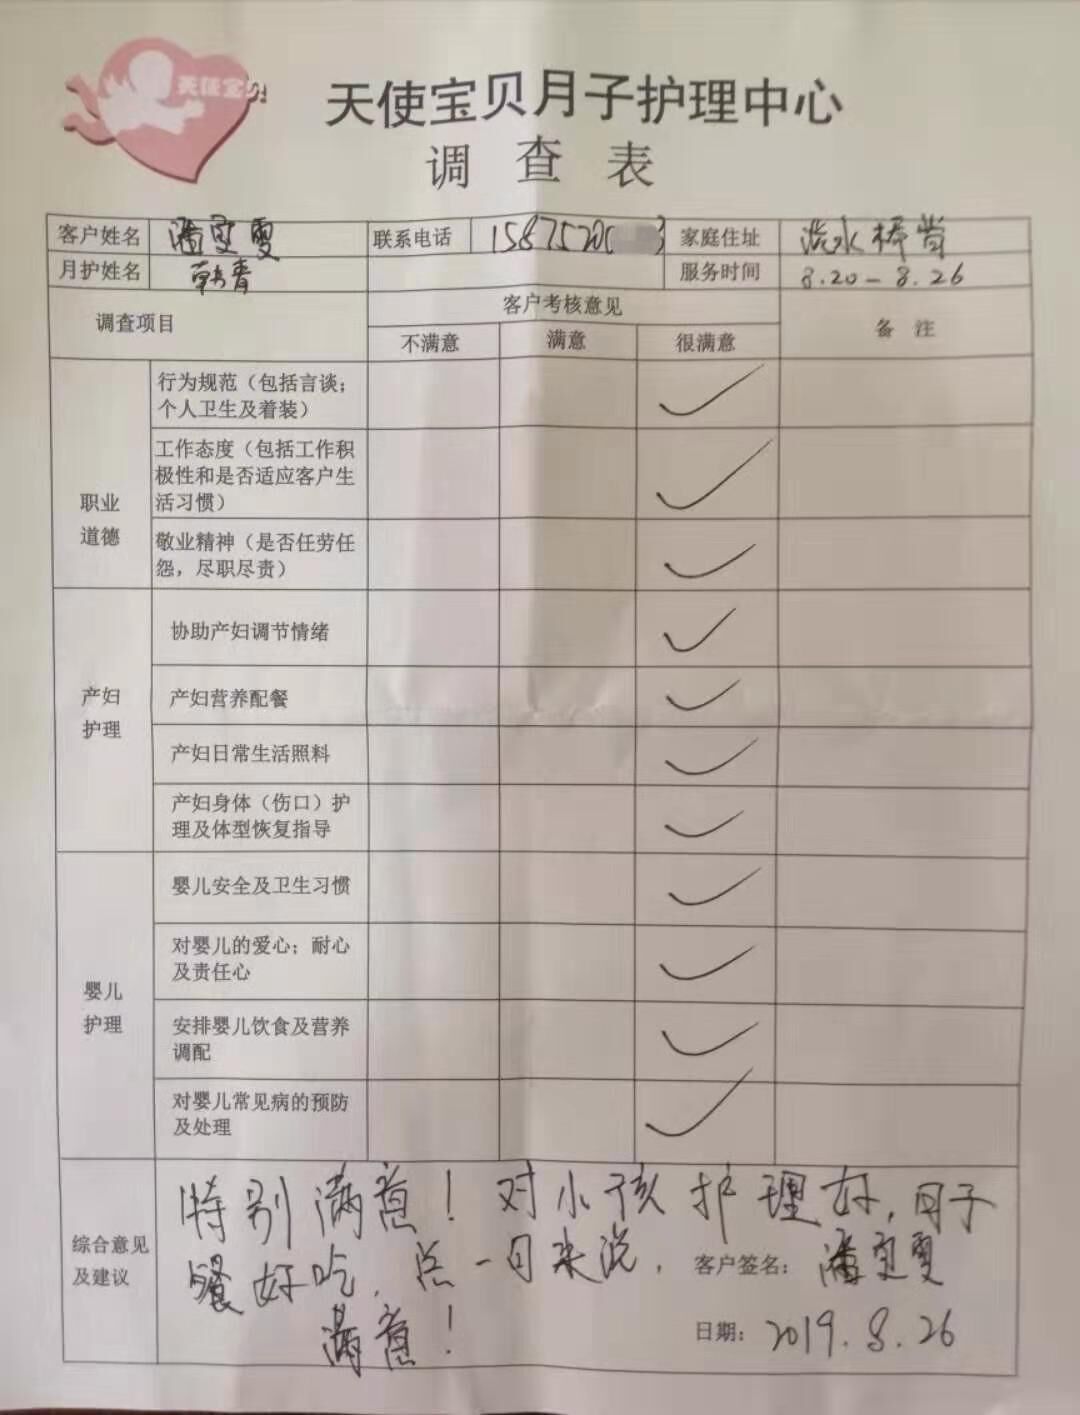 天使宝贝
天使宝贝月子护理中心
调查表
客户姓名 潘 雯 联系电话 1587520 3 家庭住址 浠水
月护姓名 韩青 服务时间 8.20-8.26
调查项目 客户考核意见 备注
不满意 满意 很满意
职业
道德
行为规范（包括言谈；
个人卫生及着装） ✓
工作态度（包括工作积
极性和是否适应客户生
活习惯） ✓
敬业精神（是否任劳任
怨，尽职尽责） ✓
产妇
护理
协助产妇调节情绪 ✓
产妇营养配餐 ✓
产妇日常生活照料 ✓
产妇身体（伤口）护
理及体型恢复指导 ✓
婴儿
护理
婴儿安全及卫生习惯 ✓
对婴儿的爱心；耐心
及责任心 ✓
安排婴儿饮食及营养
调配 ✓
对婴儿常见病的预防
及处理 ✓
综合意见
及建议
特别满意！对小孩护理好，月子
餐好吃，总一日来说，
满意！
客户签名：潘 雯
日期：2019.8.26